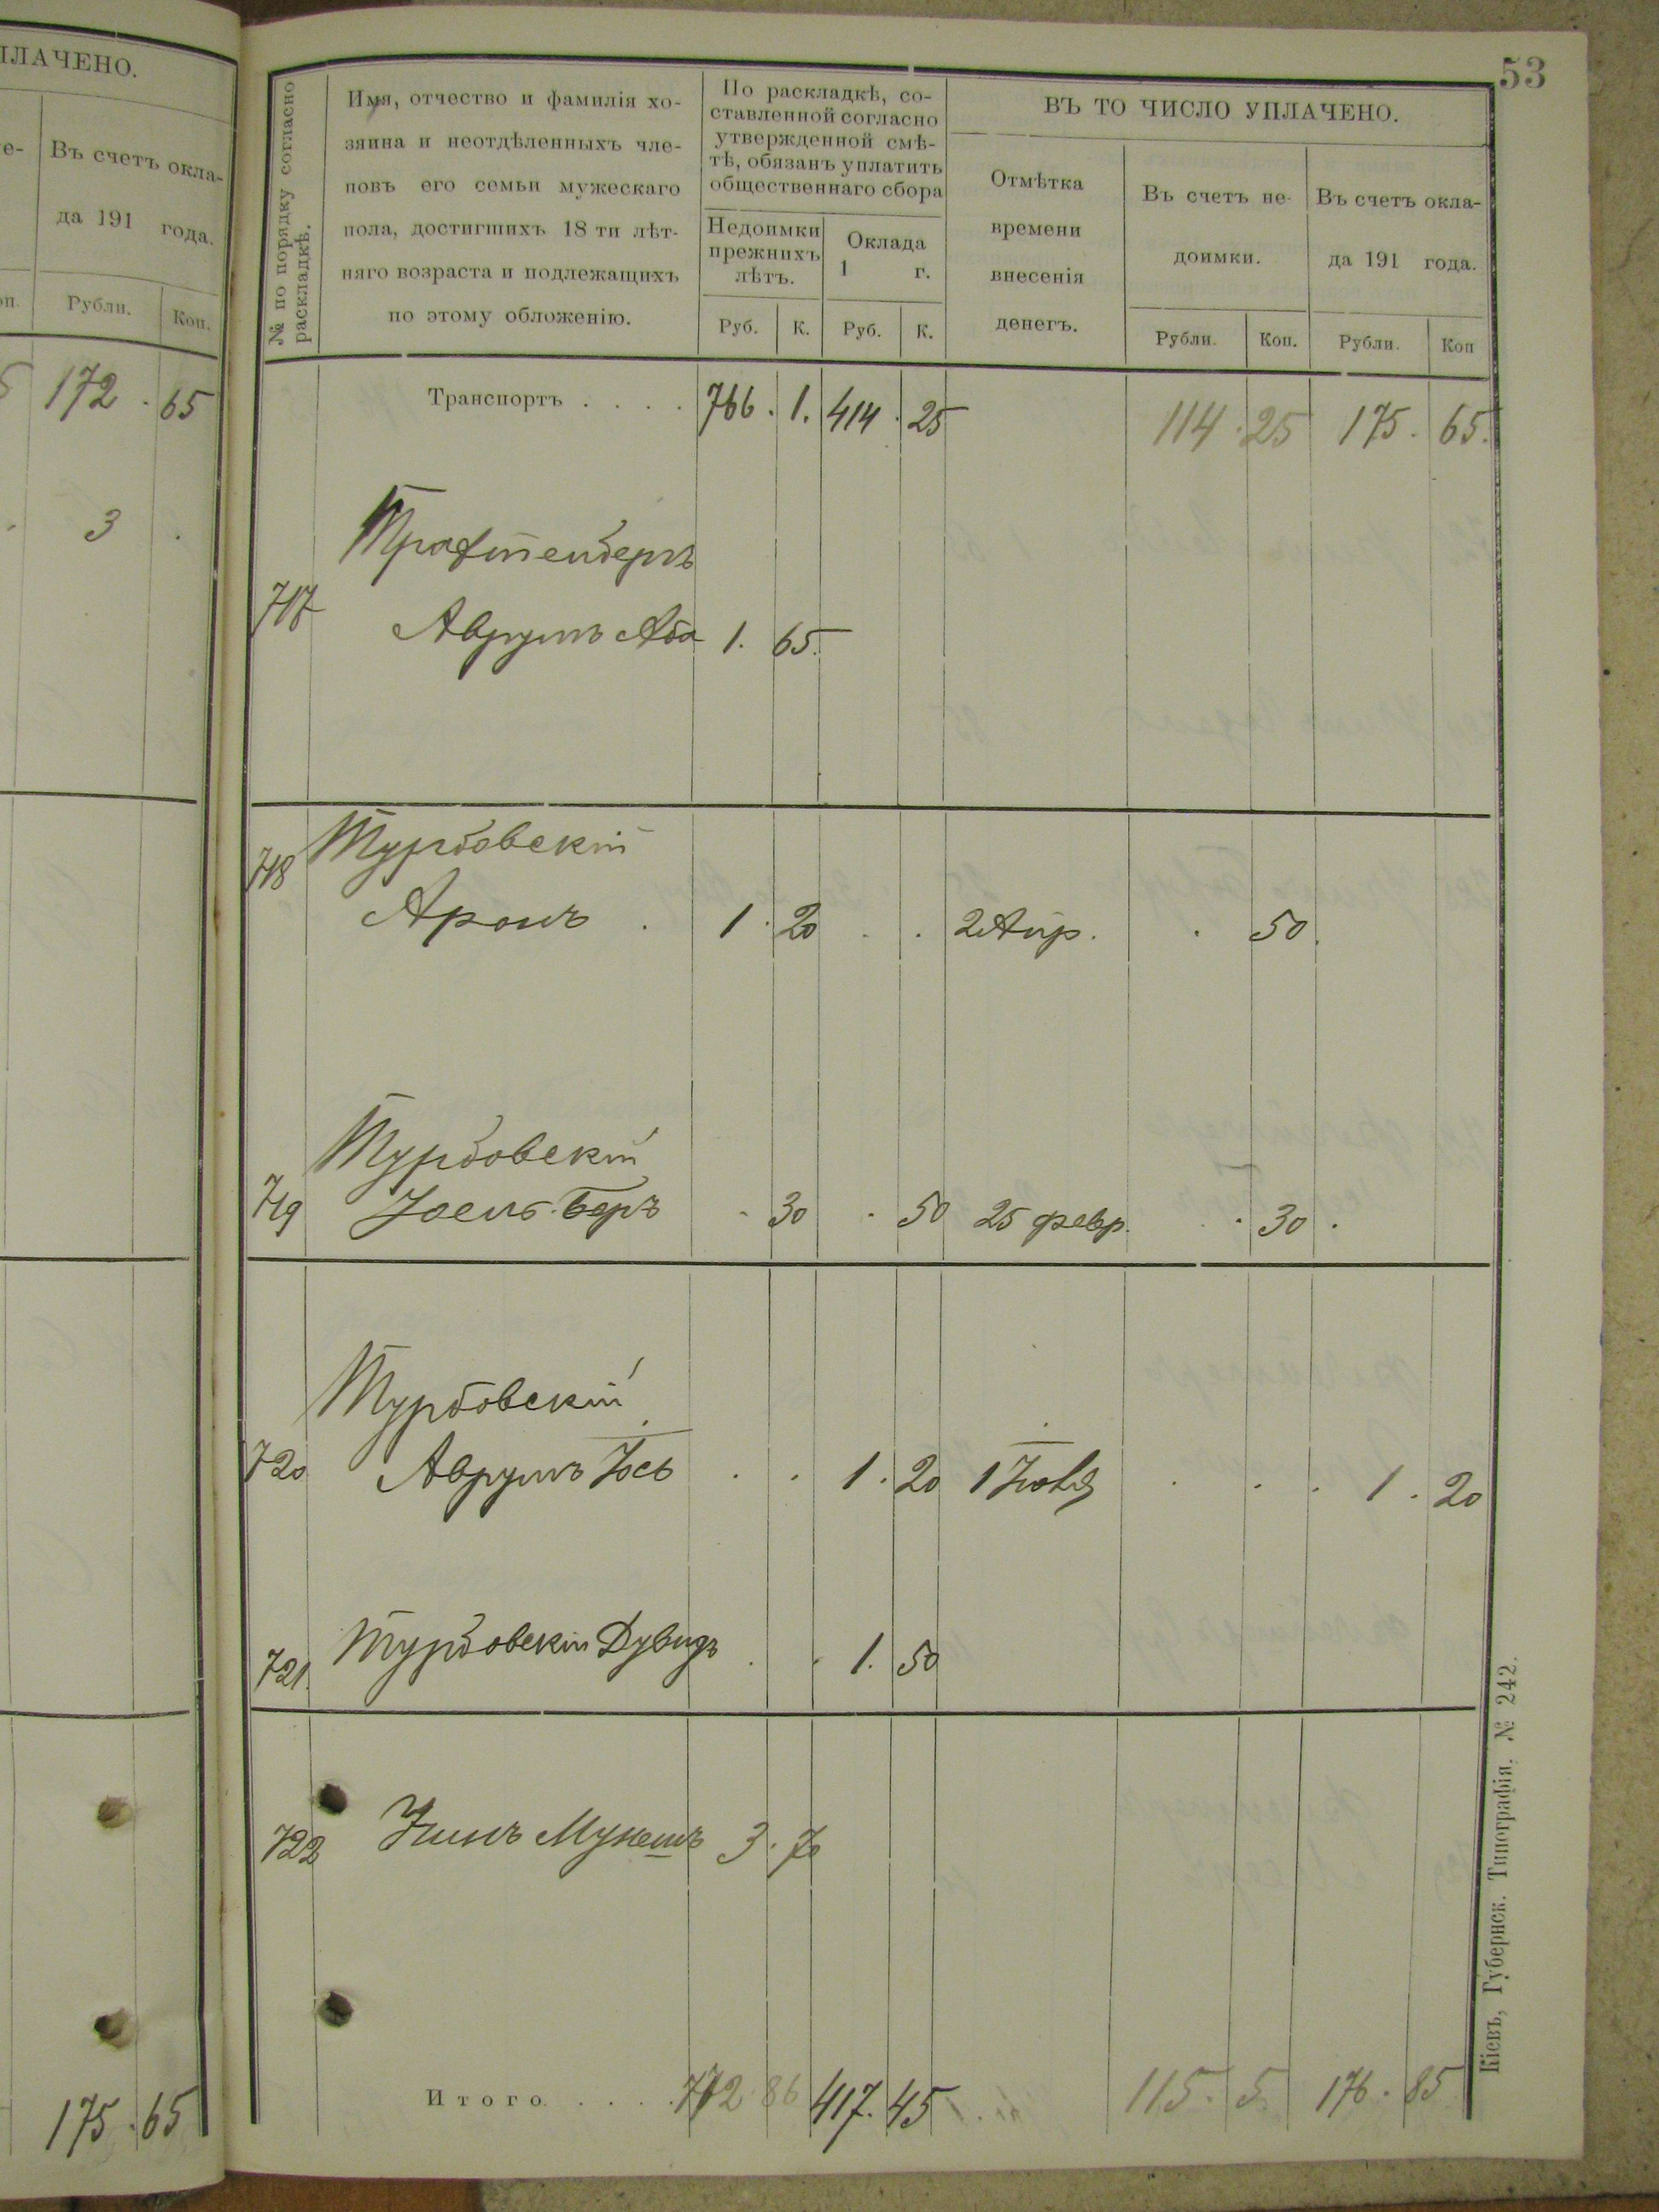 ПЛАЧЕНО.
Въ счетъ окла-
да 191 года.
Рубли. Коп.
172 . 65
3 .
175 . 65
53
№ по порядку согласно
раскладкѣ.
Имя, отчество и фамилія хо-
зяина и неотдѣленныхъ чле-
новъ его семьи мужескаго
пола, достигшихъ 18 ти лѣт-
няго возраста и подлежащихъ
по этому обложенію.
По раскладкѣ, со-
ставленной согласно
утвержденной смѣ-
тѣ, обязанъ уплатить
общественнаго сбора
Недоимки
прежнихъ
лѣтъ.
Руб. К.
Оклада
1 г.
Руб. К.
ВЪ ТО ЧИСЛО УПЛАЧЕНО.
Отмѣтка
времени
внесенія
денегъ.
Въ счетъ не-
доимки.
Рубли. Коп.
Въ счетъ окла-
да 191 года.
Рубли. Коп
Транспортъ . . . . 766 . 1. 414 . 25 114 . 25 175 . 65.
Трахтенберъ
717 Аврумъ Аба 1. 65.
Турбовскій
718 Аронъ . 1 . 20 . . 2 Апр. . 50.
Турбовскій
719 Іоель-Беръ . 30 . 50 25 февр. . 30 .
Турбовскій
720 Аврумъ Іось . . 1 . 20 1 Іюля . . . 1 . 20
721. Турбовскій Дувидъ . . 1. 50
722 Мунешъ 3 . 70
Итого . . . . 772 86 417. 45 115 . 5. 176 . 85
Кіевъ, Губернск. Типографія, № 242.